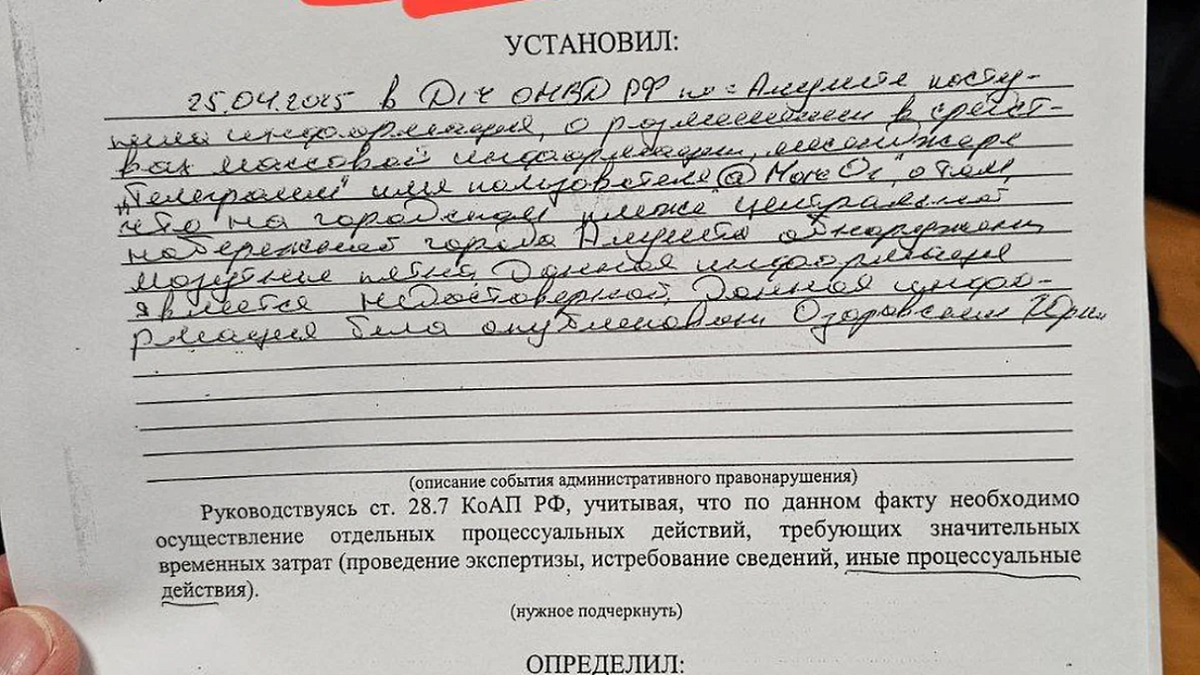 УСТАНОВИЛ:
25.04.2025 в Д/Ч ОМВД РФ по г. Алуште посту-
пила информация, о размещении в средст-
вах массовой информации, мессенджере
„Телеграмм" или пользователя @ о том,
что на городском пляже центральной
набережной города Алушта обнаружены
мазутные пятна. Данная информация
является недостоверной. Данная инфор-
рмация была опубликована Озаровским
(описание события административного правонарушения)
Руководствуясь ст. 28.7 КоАП РФ, учитывая, что по данному факту необходимо
осуществление отдельных процессуальных действий, требующих значительных
временных затрат (проведение экспертизы, истребование сведений, иные процессуальные
действия).
(нужное подчеркнуть)
ОПРЕДЕЛИЛ: